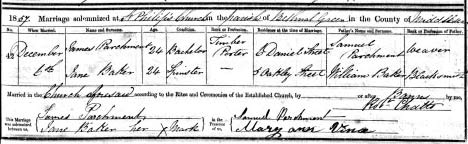 1857. Marriage solemnized at St Philip's Church in the Parish of Bethnal Green in the County of Middlesex
No. When Married. Name and Surname. Age. Condition. Rank or Profession. Residence at the time of Marriage. Father's Name and Surname. Rank or Profession of Father.
42 December 6th James Parchment 24 Bachelor Timber Porter Daniel Street Samuel Parchment Weaver
Jane Baker 24 Spinster Oakley Street William Baker Blacksmith
Married in the Church aforesaid according to the Rites and Ceremonies of the Established Church, by or after Banns
This Marriage was solemnized between us, James Parchment in the Presence of us, Samuel Parchment
Jane Baker her X Mark Mary Ann Vine